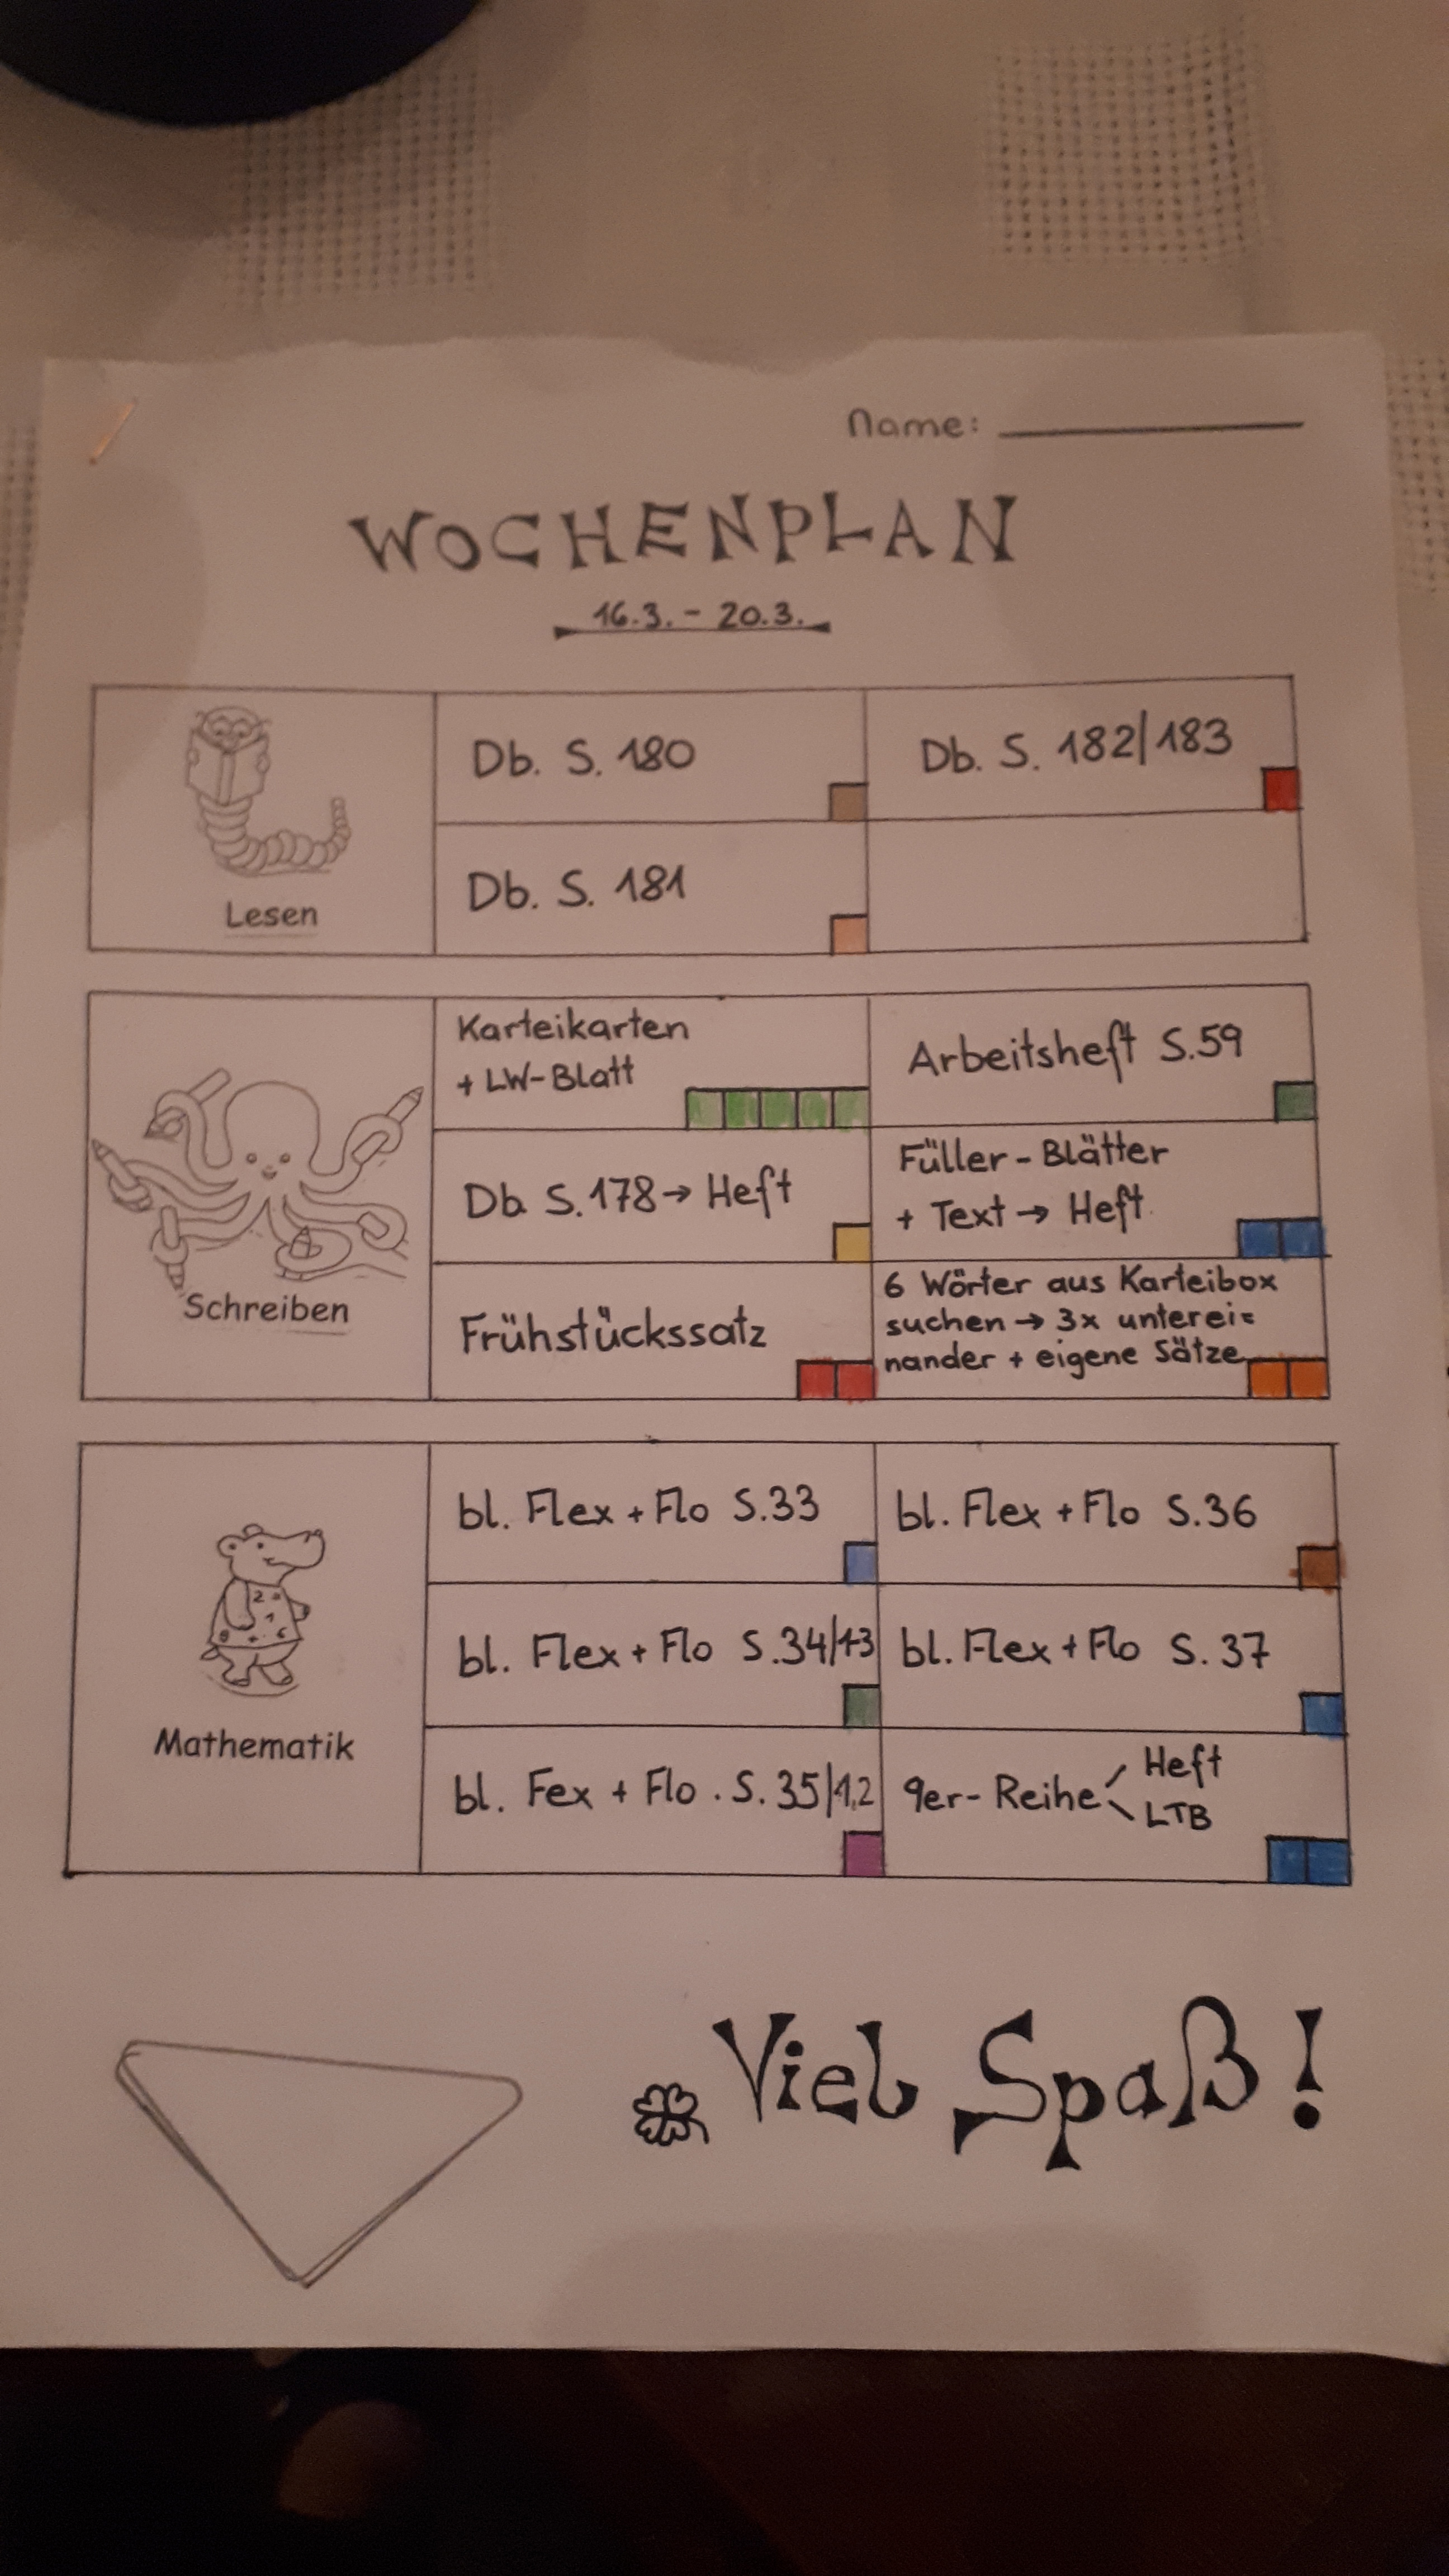 Name:
WOCHENPLAN
16.3. - 20.3.
Lesen
Db. S. 180
Db. S. 182/183
Db. S. 181
Schreiben
Karteikarten
+ LW-Blatt
Arbeitsheft S.59
Db S.178→ Heft
Füller-Blätter
+ Text → Heft
Frühstückssatz
6 Wörter aus Karteibox
suchen → 3x unterei=
nander + eigene Sätze
Mathematik
bl. Flex + Flo S.33
bl. Flex + Flo S.36
bl. Flex + Flo S.34/1-3
bl. Flex + Flo S. 37
bl. Fex + Flo . S. 35/1,2
9er-Reihe
Heft
LTB
Viel Spaß!